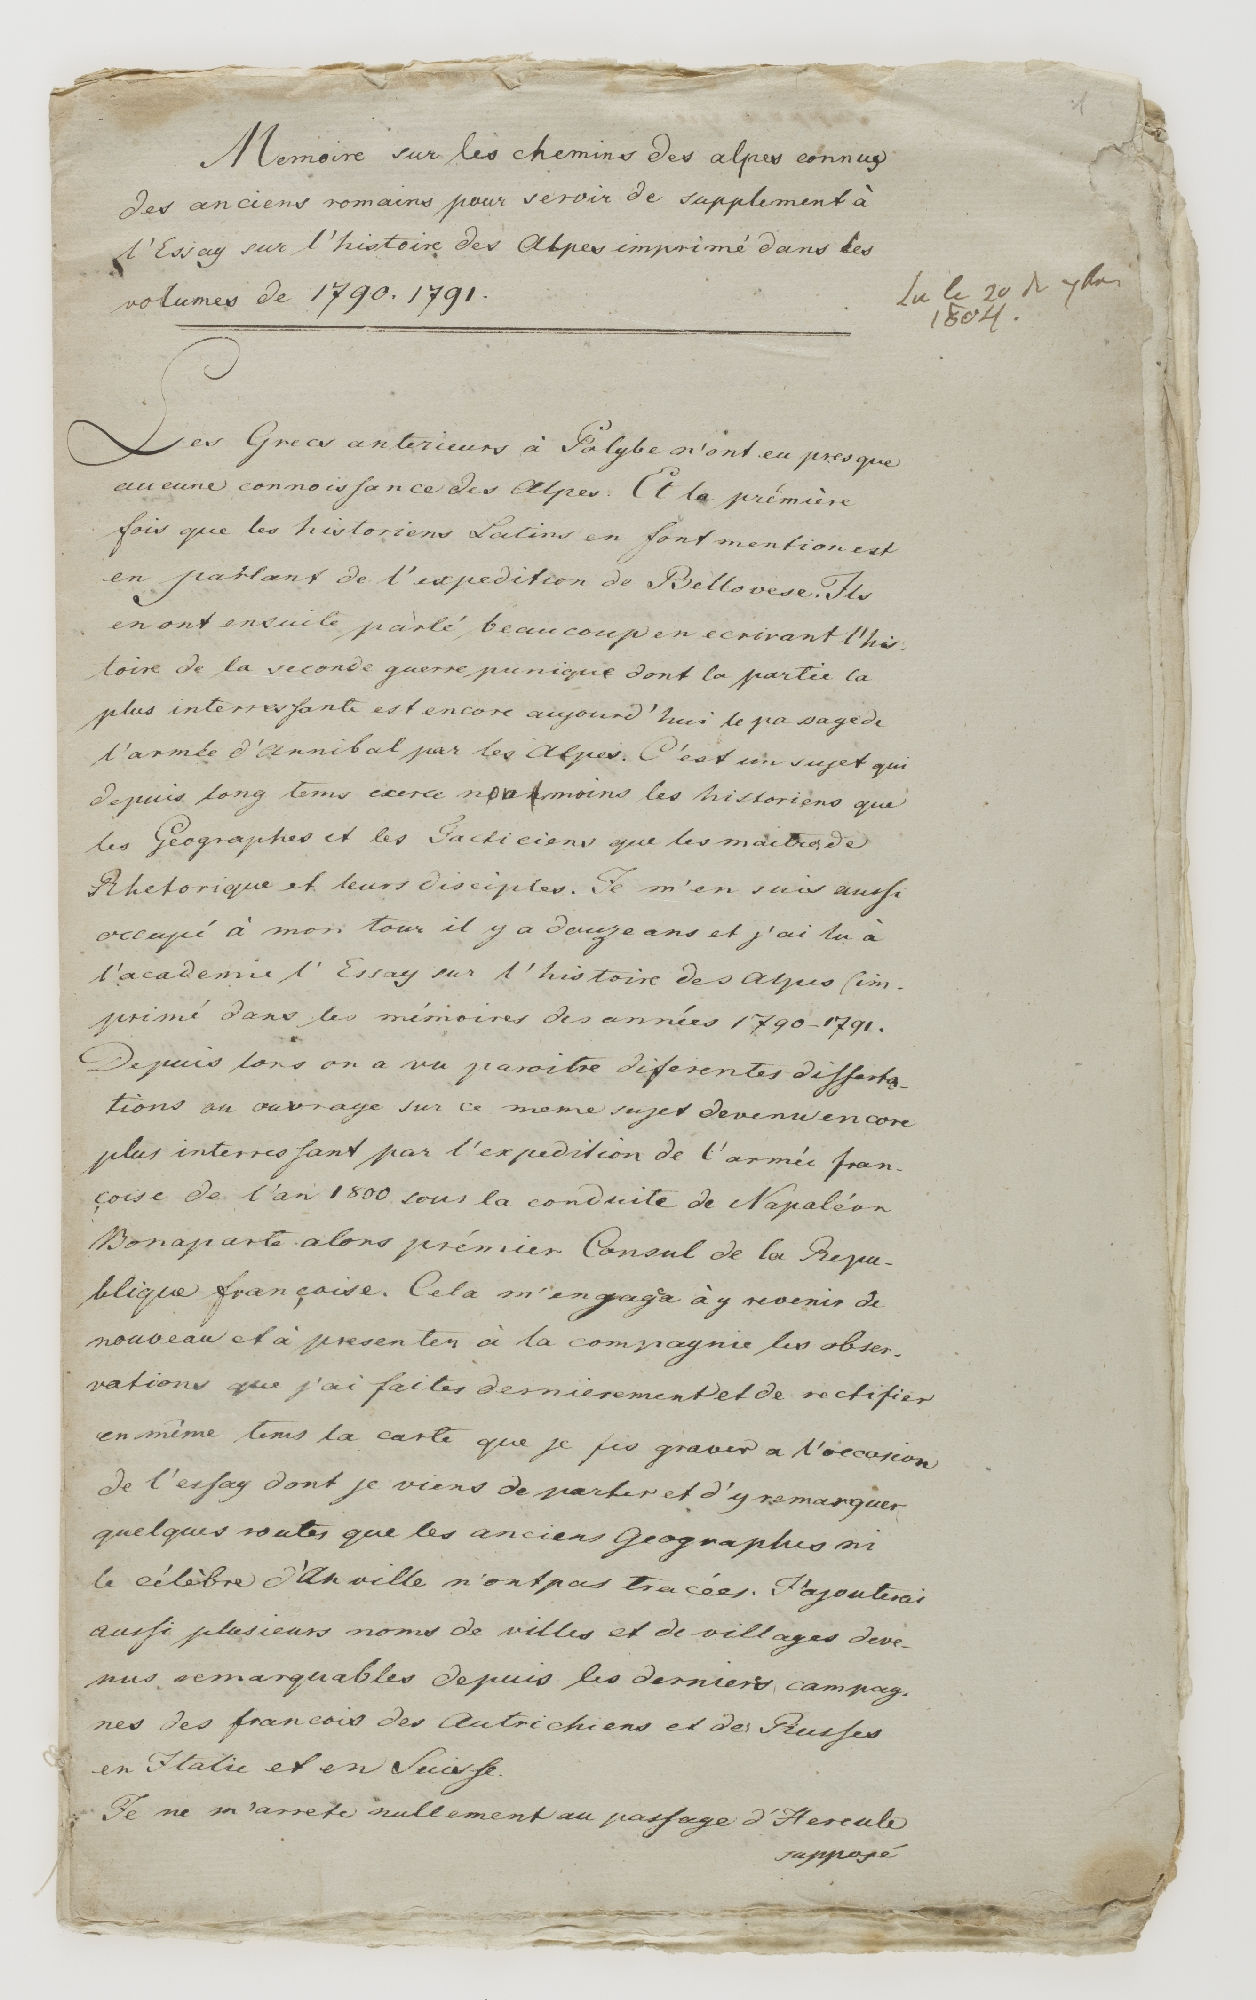 Memoire sur les chemins des alpes connus
des anciens romains pour servir de supplement à
l'Essay sur l'histoire des Alpes imprimé dans les
volumes de 1790. 1791.
Lu le 20 de 7bre
1804.
Les Grecs anterieurs à Polybe n'ont eu presque
aucune connoissance des Alpes. Et la prémière
fois que les historiens Latins en font mention est
en parlant de l'expedition de Bellovese. Ils
en ont ensuite parlé, beaucoup en ecrivant l'his-
toire de la seconde guerre punique dont la partie la
plus interressante est encore aujourd'hui le passage de
l'armée d'Annibal par les Alpes. C'est un sujet qui
depuis long tems exerce non moins les historiens que
les Géographes et les Tacticiens que les maitres de
Rhetorique et leurs disciples. Je m'en suis aussi
occupé à mon tour il y a douze ans et j'ai lu à
l'academie l'Essay sur l'histoire des Alpes (im-
primé dans les mémoires des années 1790-1791.
Depuis lors on a vu paroitre diferentes disserta-
tions ou ouvrage sur ce meme sujet devenu encore
plus interressant par l'expedition de l'armée fran-
çoise de l'an 1800 sous la conduite de Napaléon
Bonaparte alors prémier Consul de la Repu-
blique françoise. Cela m'engaga à y revenir de
nouveau et à presenter à la compagnie les obser-
vations que j'ai faites dernierement et de rectifier
en même tems la carte que je fis graver a l'occasion
de l'essay dont je viens de parler et d'y remarquer
quelques routes que les anciens Geographes ni
le célèbre d'Anville n'ont pas tracées. J'ajouterai
aussi plusieurs noms de villes et de villages deve-
nus remarquables depuis les derniers campag-
nes des francois des Autrichiens et des Russes
en Italie et en Suisse.
Je ne m'arrete nullement au passage d'Hercule
supposé